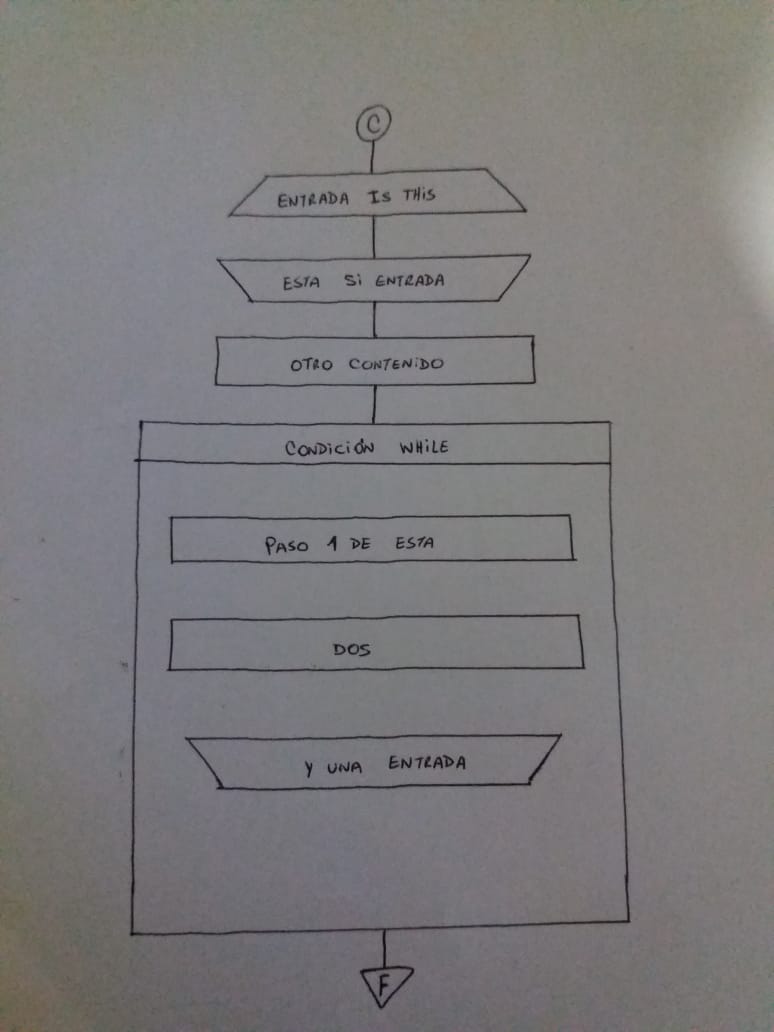 C
ENTRADA IS THIS
ESTA SI ENTRADA
OTRO CONTENIDO
CONDICIÓN WHILE
PASO 1 DE ESTA
DOS
Y UNA ENTRADA
F